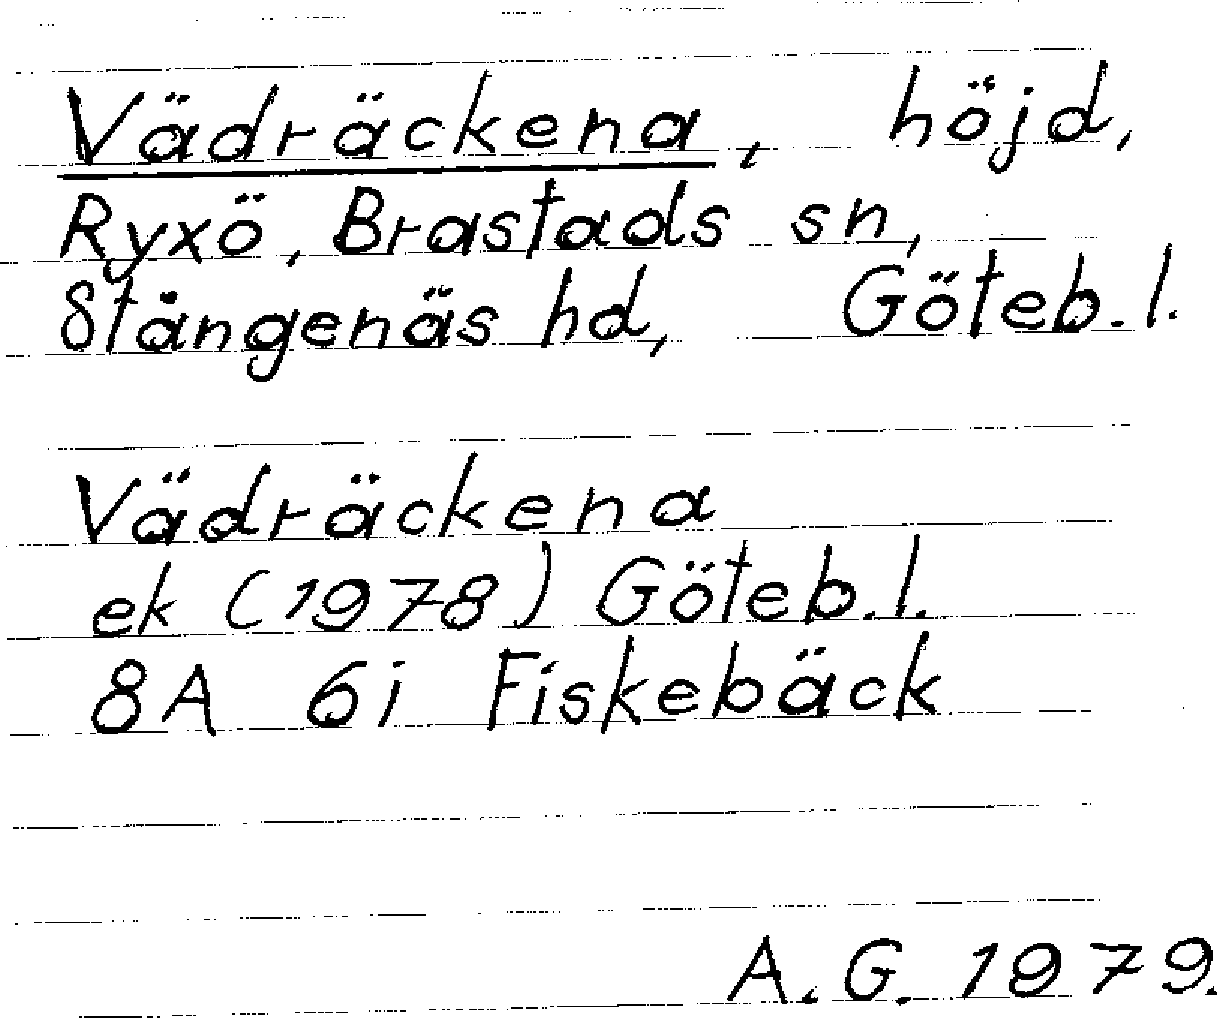 Vädräckena, höjd,
Ryxö, Brastads sn,
Stångenäs hd, Göteb. l.
Vädräckena
ek (1978) Göteb. l.
8A 6i Fiskebäck
A. G. 1979.